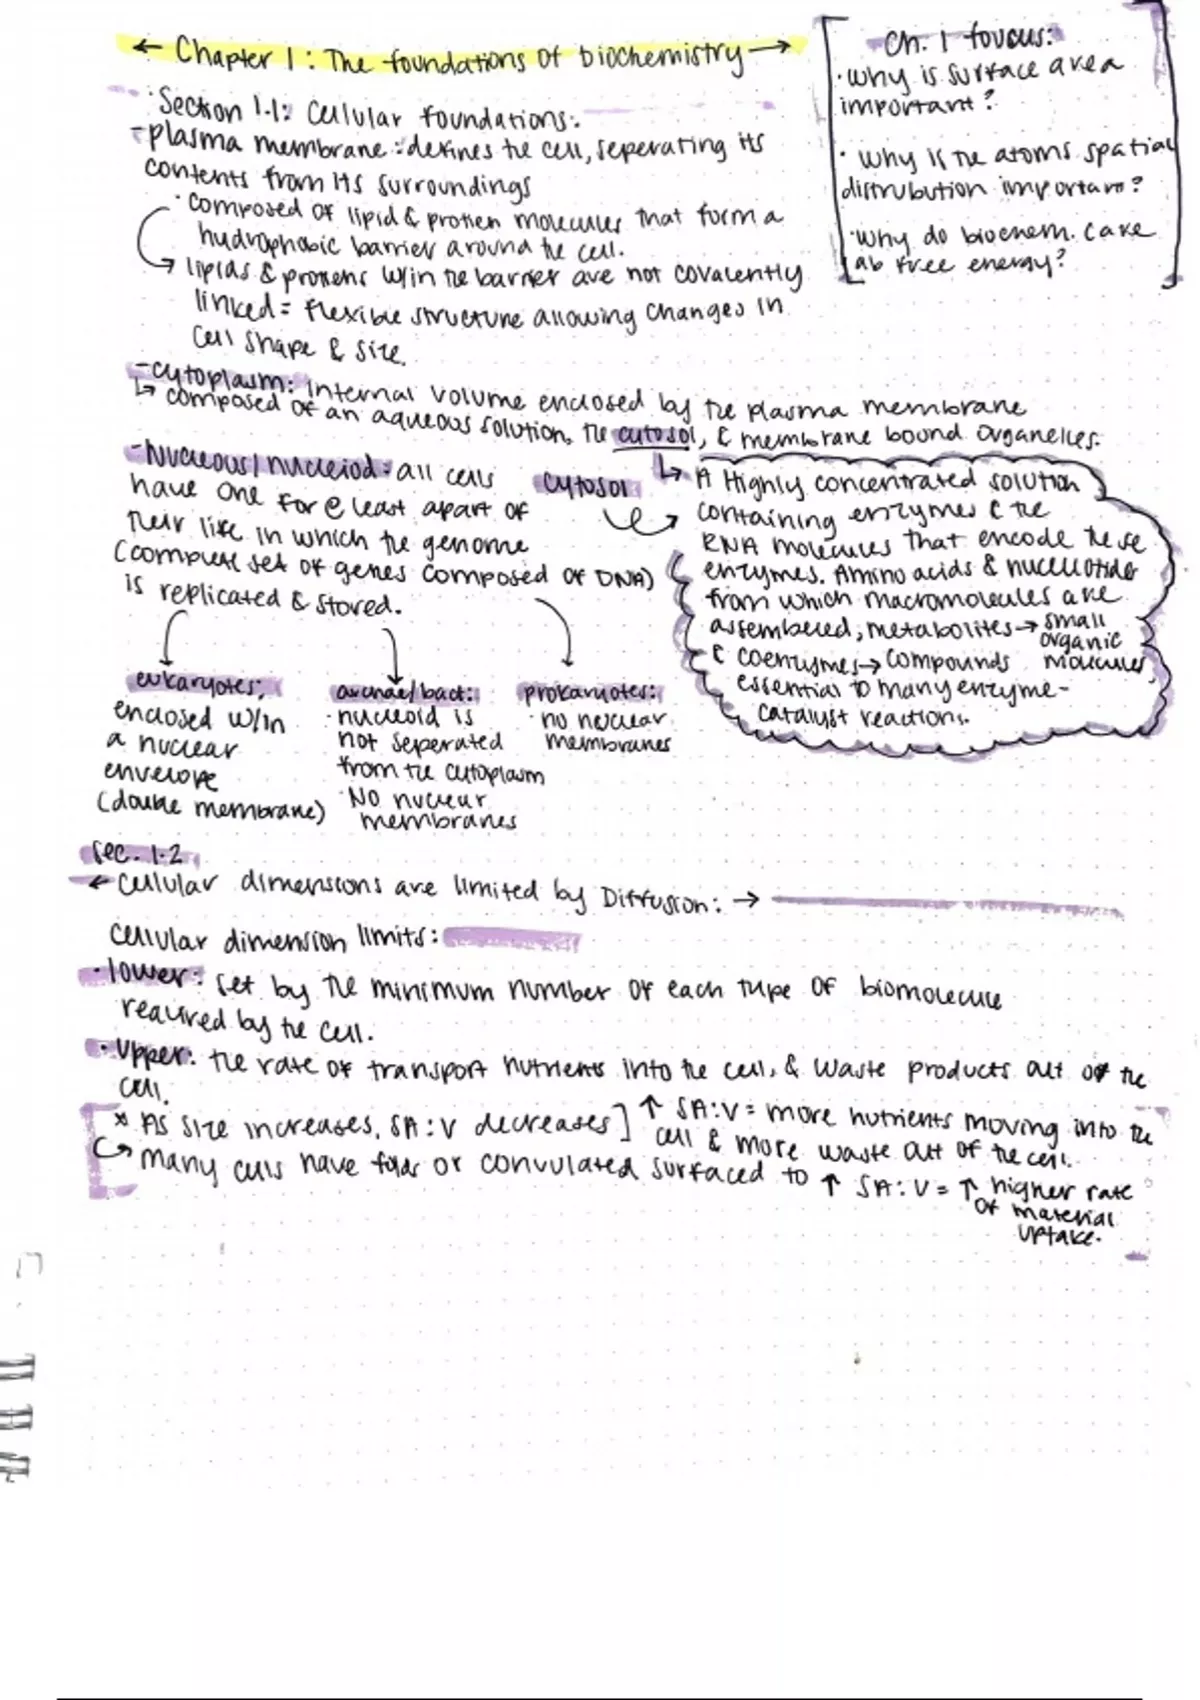 ← Chapter 1: The foundations of biochemistry →
Ch. 1 foucus:
· why is surface area
important?
· why is the atoms spatial
distrubution important?
· why do biochem. care
ab free energy?
· Section 1.1: Cellular foundations:
- plasma membrane: defines the cell, seperating its
contents from its surroundings
· composed of lipid & protien molecules that form a
hydrophobic barrier around the cell.
→ lipids & protiens w/in the barrier are not covalently
linked = flexible structure allowing changes in
cell shape & size.
- cytoplasm: internal volume enclosed by the plasma membrane
↳ composed of an aqueous solution, the cytosol, & membrane bound organelles.
- Nucleous/nucleiod: all cells
have one for @ least apart of
their life in which the genome
(complete set of genes composed of DNA)
is replicated & stored.
cytosol
↳ A Highly concentrated solution
containing enzymes & the
RNA molecules that encode these
enzymes. Amino acids & nucleotides
from which macromolecules are
assembered, metabolites → small organic molecules,
& coenzymes → compounds
essential to many enzyme-
catalyst reactions.
eukaryotes:
enclosed w/in
a nuclear
envelope
(double membrane)
archaea/bact:
· nucleoid is
not seperated
from the cytoplasm
· No nuclear
membranes
prokaryotes:
· no nuclear
membranes
sec. 1.2
← cellular dimensions are limited by Diffusion: →
cellular dimension limits:
· lower: set by the minimum number of each type of biomolecule
required by the cell.
· Upper: the rate of transport nutrients into the cell, & waste products out of the
cell.
* As size increases, SA:V decreases] ↑ SA:V = more nutrients moving into the
cell & more waste out of the cell.
↳ many cells have folds or convulated surfaced to ↑ SA:V = ↑ higher rate
of material
uptake.